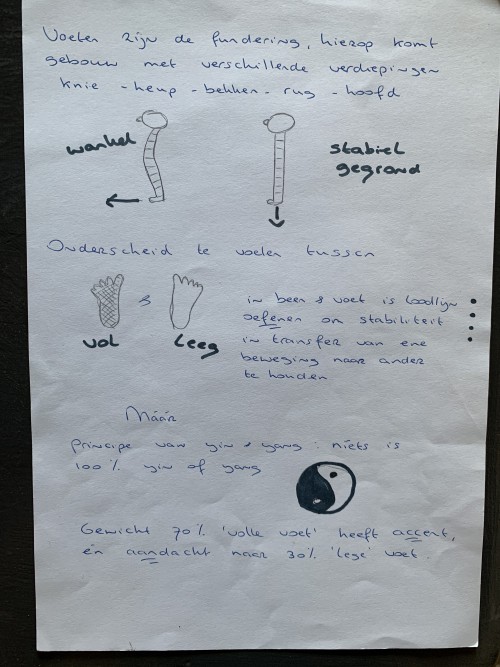 Voeten zijn de fundering, hierop komt
gebouw met verschillende verdiepingen
knie - heup - bekken - rug - hoofd
wankel
stabiel
gegrond
Onderscheid te voelen tussen
vol
&
leeg
in been & voet is loodlijn
oefenen om stabiliteit
in transfer van ene
beweging naar ander
te houden
Máár
principe van yin & yang : niets is
100% yin of yang
Gewicht 70% 'volle voet' heeft accent,
én aandacht naar 30% 'lege' voet.